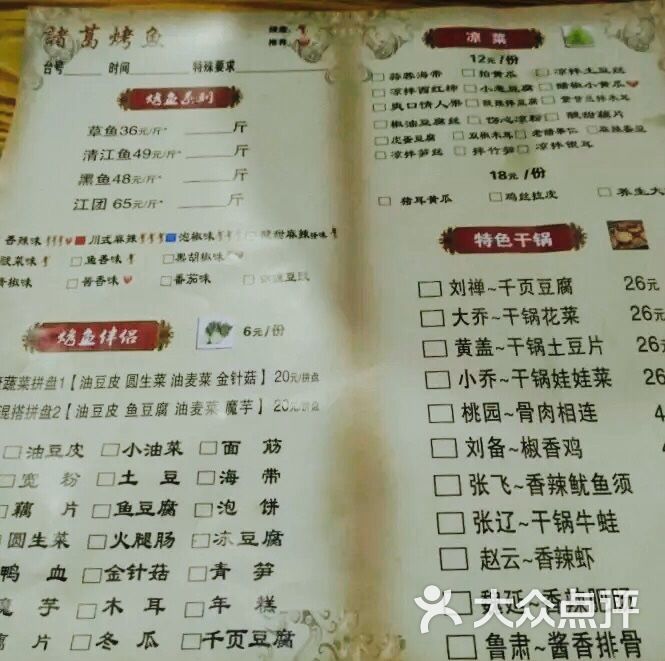 諸葛烤鱼
推荐
台号 时间 特殊要求
烤鱼系列
草鱼36元/斤 斤
清江鱼49元/斤 斤
黑鱼48元/斤 斤
江团 65元/斤 斤
香辣味 川式麻辣 泡椒味 酸甜麻辣怪味
酸菜味 鱼香味 黑胡椒味
青椒味 酱香味 番茄味
烤鱼伴侣 6元/份
蔬菜拼盘1【油豆皮 圆生菜 油麦菜 金针菇】20元/拼盘
混搭拼盘2【油豆皮 鱼豆腐 油麦菜 魔芋】20元/拼盘
油豆皮 小油菜 面筋
宽粉 土豆 海带
藕片 鱼豆腐 泡饼
圆生菜 火腿肠 冻豆腐
鸭血 金针菇 青笋
魔芋 木耳 年糕
片 冬瓜 千页豆腐
凉菜
12元/份
蒜蓉海带 拍黄瓜 凉拌土豆丝
凉拌西红柿 小葱豆腐 醋椒小黄瓜
爽口情人带 麻辣拌豆腐
椒油豆腐丝 伤心凉粉 酸甜藕片
皮蛋豆腐 豆椒木耳 老醋果仁 麻辣蚕豆
凉拌笋丝 拌竹笋 凉拌银耳
18元/份
猪耳黄瓜 鸡丝拉皮 养生大
特色干锅
刘禅~千页豆腐 26元
大乔~干锅花菜 26元
黄盖~干锅土豆片 26元
小乔~干锅娃娃菜 26元
桃园~骨肉相连 4
刘备~椒香鸡
张飞~香辣鱿鱼须
张辽~干锅牛蛙
赵云~香辣虾
魏延~香辣肥肠
鲁肃~酱香排骨
大众点评